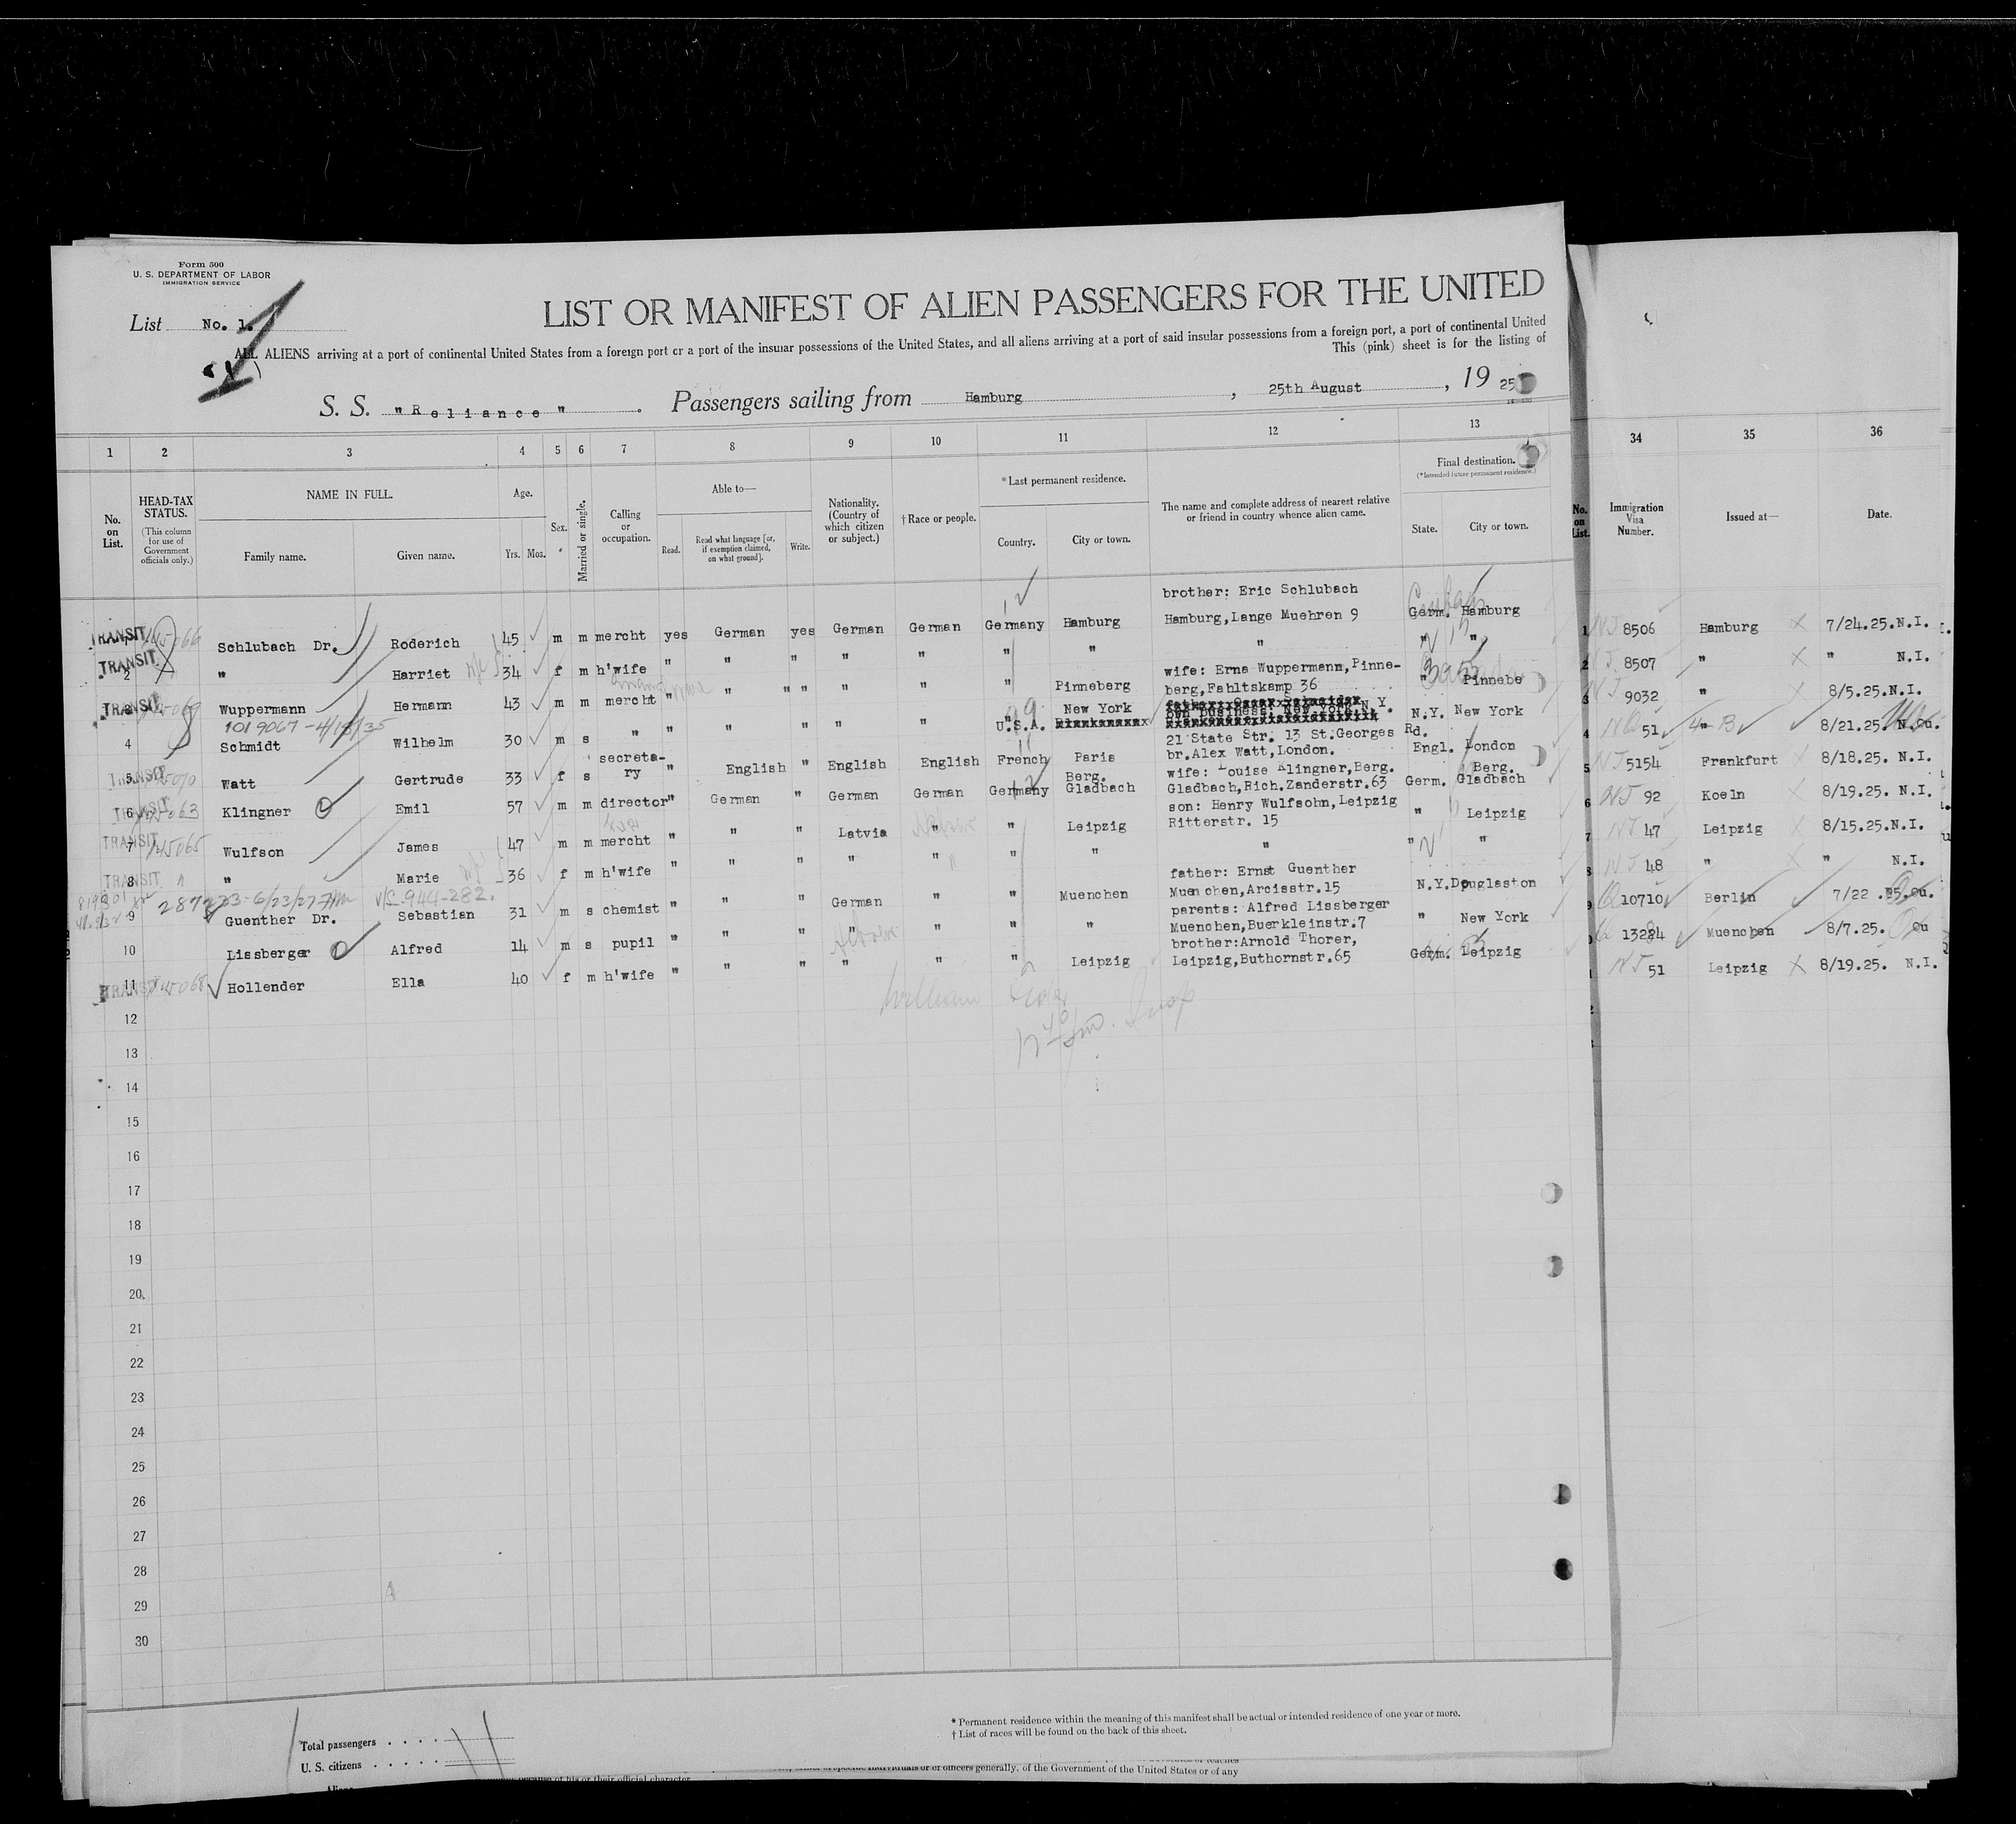 Form 500
U. S. DEPARTMENT OF LABOR
IMMIGRATION SERVICE
List No. 1.
LIST OR MANIFEST OF ALIEN PASSENGERS FOR THE UNITED
ALL ALIENS arriving at a port of continental United States from a foreign port or a port of the insular possessions of the United States, and all aliens arriving at a port of said insular possessions from a foreign port, a port of continental United
This (pink) sheet is for the listing of
S. S. "Reliance" . Passengers sailing from Hamburg , 25th August , 19 25
1 2 3 4 5 6 7 8 9 10 11 12 13 34 35 36
No. on List.
HEAD-TAX STATUS.
(This column for use of Government officials only.)
NAME IN FULL.
Family name. Given name.
Age.
Yrs. Mos.
Sex.
Married or single.
Calling or occupation.
Able to—
Read. Read what language [or, if exemption claimed, on what ground]. Write.
Nationality. (Country of which citizen or subject.)
† Race or people.
* Last permanent residence.
Country. City or town.
The name and complete address of nearest relative or friend in country whence alien came.
Final destination.
(* Intended future permanent residence.)
State. City or town.
No. on List.
Immigration Visa Number.
Issued at—
Date.
brother: Eric Schlubach
TRANSIT 1 Schlubach Dr. Roderich 45 m m mercht yes German yes German German Germany Hamburg Hamburg,Lange Muehren 9 Germ. Hamburg 1 8506 Hamburg 7/24.25.N.I.
TRANSIT 2 " Harriet 34 f m h'wife " " " " " " " " " " 2 8507 " " N.I.
wife: Erna Wuppermann,Pinne-
TRANSIT 3 Wuppermann Hermann 43 m m mercht " " " " " " Pinneberg berg,Fahltskamp 36 " Pinnebe 3 9032 " 8/5.25.N.I.
1019067-4/18/35
own business: New York N.Y.
4 Schmidt Wilhelm 30 m s " " " " " " U.S.A. New York 21 State Str. N.Y. New York 4 51 " 8/21.25.
13 St.Georges Rd.
TRANSIT 5 Watt Gertrude 33 f s secreta-ry " English " English English French Paris br.Alex Watt,London. Engl. London 5 5154 Frankfurt 8/18.25. N.I.
wife: Louise Klingner,Berg.
TRANSIT 6 Klingner Emil 57 m m director " German " German German Germany Berg. Gladbach Gladbach,Rich.Zanderstr.63 Germ. Berg. Gladbach 6 92 Koeln 8/19.25. N.I.
son: Henry Wulfsohn,Leipzig
TRANSIT 7 Wulfson James 47 m m mercht " " " Latvia " " Leipzig Ritterstr. 15 " Leipzig 7 47 Leipzig 8/15.25.N.I.
TRANSIT 8 " Marie 36 f m h'wife " " " " " " " " " " 8 48 " " N.I.
V/S-944-282.
father: Ernst Guenther
9 Guenther Dr. Sebastian 31 m s chemist " " " German " " Muenchen Muenchen,Arcisstr.15 N.Y. Douglaston 9 10710 Berlin 7/22 .25.Qu.
parents: Alfred Lissberger
10 Lissberger Alfred 14 m s pupil " " " " " " " Muenchen,Buerkleinstr.7 " New York 13284 Muenchen 8/7.25. Qu
brother:Arnold Thorer,
TRANSIT 11 Hollender Ella 40 f m h'wife " " " " " " Leipzig Leipzig,Buthornstr.65 Germ. Leipzig 51 Leipzig 8/19.25. N.I.
William
12
13
14
15
16
17
18
19
20
21
22
23
24
25
26
27
28
29
30
* Permanent residence within the meaning of this manifest shall be actual or intended residence of one year or more.
† List of races will be found on the back of this sheet.
Total passengers . . . .
U. S. citizens . . . . .
generally, of the Government of the United States or of any